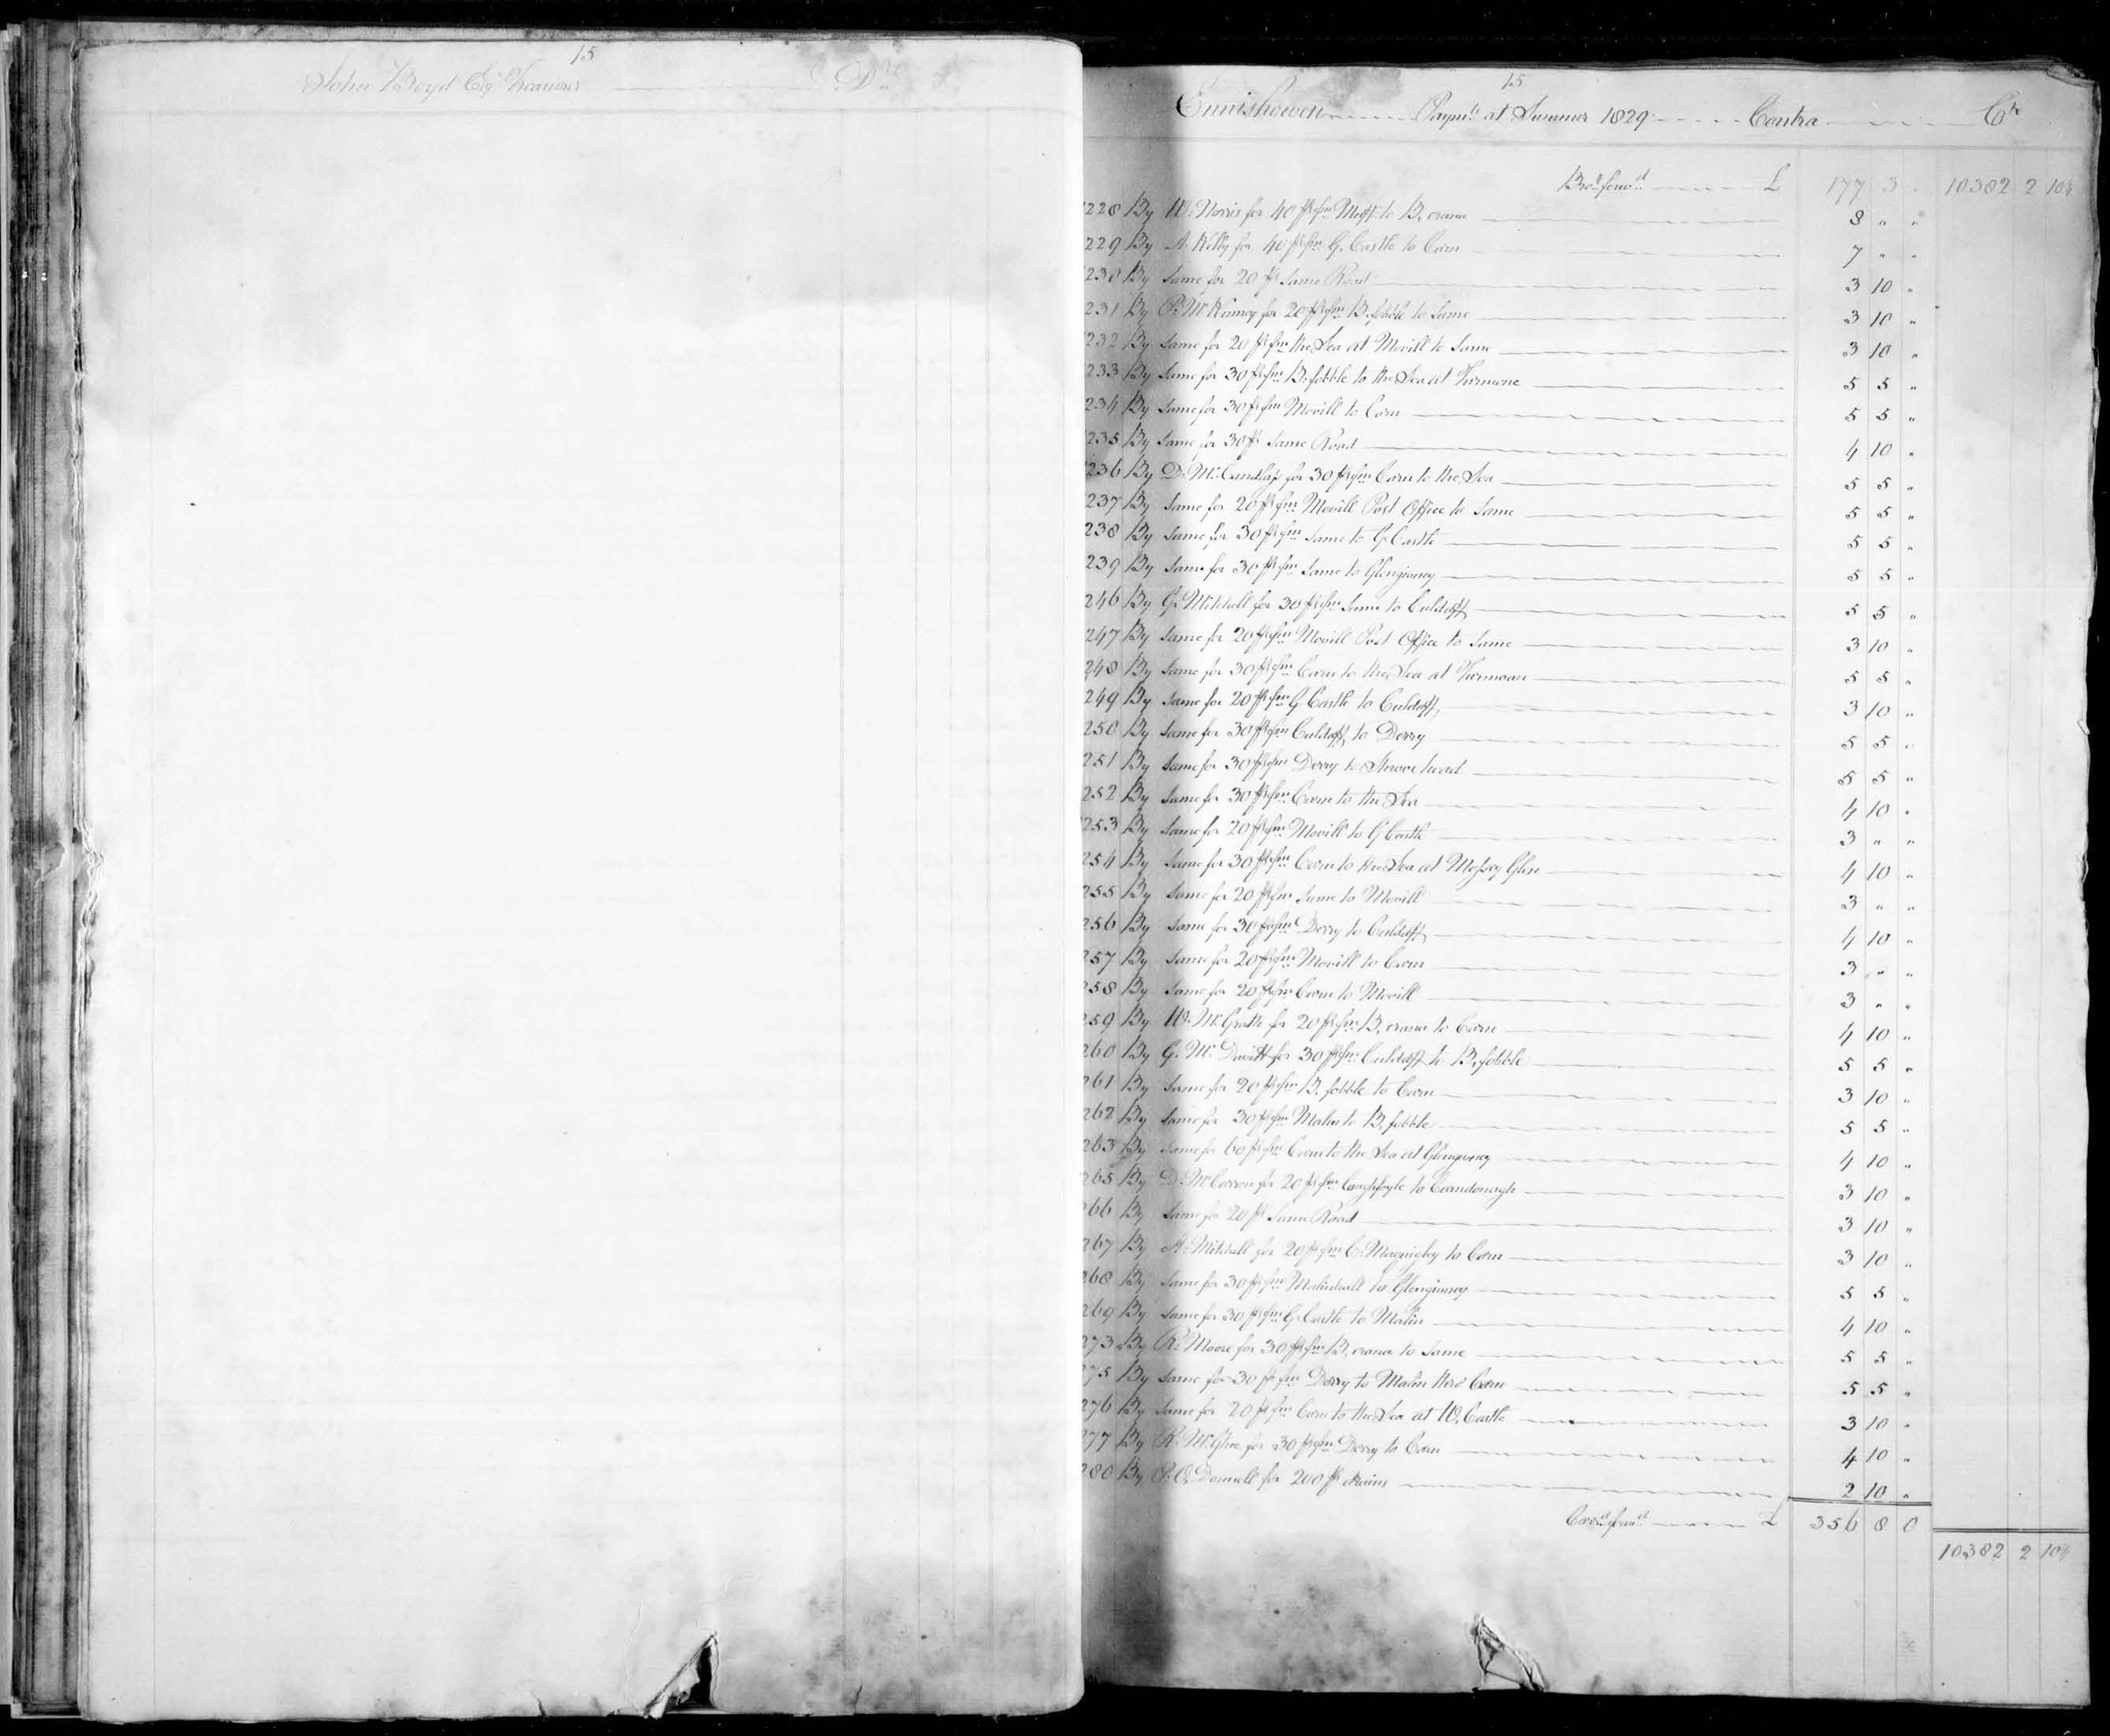 15
John Boyd Esqr Treasurer Dr
15
Ennishowen Paymts at Summer 1829 Contra Cr
Brot forwd £ 177 3 " 10382 2 10¼
228 By Wm Norris for 40 ps fm Muff to B,crana 8 " "
229 By A. Kelly for 40 ps fm G. Castle to Carn 7 " "
230 By Same for 20 ps Same Road 3 10 "
231 By P. McKinney for 20 ps fm B.fobble to Same 3 10 "
232 By Same for 20 ps fm the Sea at Movill to Same 3 10 "
233 By Same for 30 ps fm B.fobble to the Sea at Turmone 5 5 "
234 By Same for 30 ps fm Movill to Carn 5 5 "
235 By Same for 30 ps Same Road 4 10 "
236 By D. McCandlass for 30 ps fm Carn to the Sea 5 5 "
237 By Same for 20 ps fm Movill Post Office to Same 5 5 "
238 By Same for 30 ps fm Same to G.Castle 5 5 "
239 By Same for 30 ps fm Same to Glengivney 5 5 "
246 By G. Mitchell for 30 ps fm Same to Culdaff 5 5 "
247 By Same for 20 ps fm Movill Post Office to Same 3 10 "
248 By Same for 30 ps fm Carn to the Sea at Turmoan 5 5 "
249 By Same for 20 ps fm G Castle to Culdaff 3 10 "
250 By Same for 30 ps fm Culdaff to Derry 5 5 "
251 By Same for 30 ps fm Derry to Shrove head 5 5 "
252 By Same for 30 ps fm Carn to the Sea 4 10 "
253 By Same for 20 ps fm Movill to G Castle 3 " "
254 By Same for 30 ps fm Carn to the Sea at Mossey Glen 4 10 "
255 By Same for 20 ps fm Same to Movill 3 " "
256 By Same for 30 ps fm Derry to Culdaff 4 10 "
257 By Same for 20 ps fm Movill to Carn 3 " "
258 By Same for 20 ps fm Carn to Movill 3 " "
259 By Wm McGrath for 20 ps fm B,crana to Carn 4 10 "
260 By G. McDavitt for 30 ps fm Culdaff to B,fobble 5 5 "
261 By Same for 20 ps fm B.fobble to Carn 3 10 "
262 By Same for 30 ps fm Malin to B,fobble 5 5 "
263 By Same for 60 ps fm Carn to the Sea at Glengivney 4 10 "
265 By D. McCarron for 20 ps fm Loughfoyle to Carndonagh 3 10 "
266 By Same for 20 ps Same Road 3 10 "
267 By A. Mitchell for 20 ps fm C. to Carn 3 10 "
268 By Same for 30 ps fm Malinhall to Glengivney 5 5 "
269 By Same for 30 ps fm G.Castle to Malin 4 10 "
273 By R. Moore for 30 ps fm B,crana to Same 5 5 "
275 By Same for 30 ps fm Derry to Malin thro' Carn 5 5 "
276 By Same for 20 ps fm Carn to the Sea at W,Castle 3 10 "
277 By R. McGhee for 30 ps fm Derry to Carn 4 10 "
280 By P. O,Donnell for 200 ps drains 2 10 "
Carrd forwd £ 356 8 0
10382 2 10¼